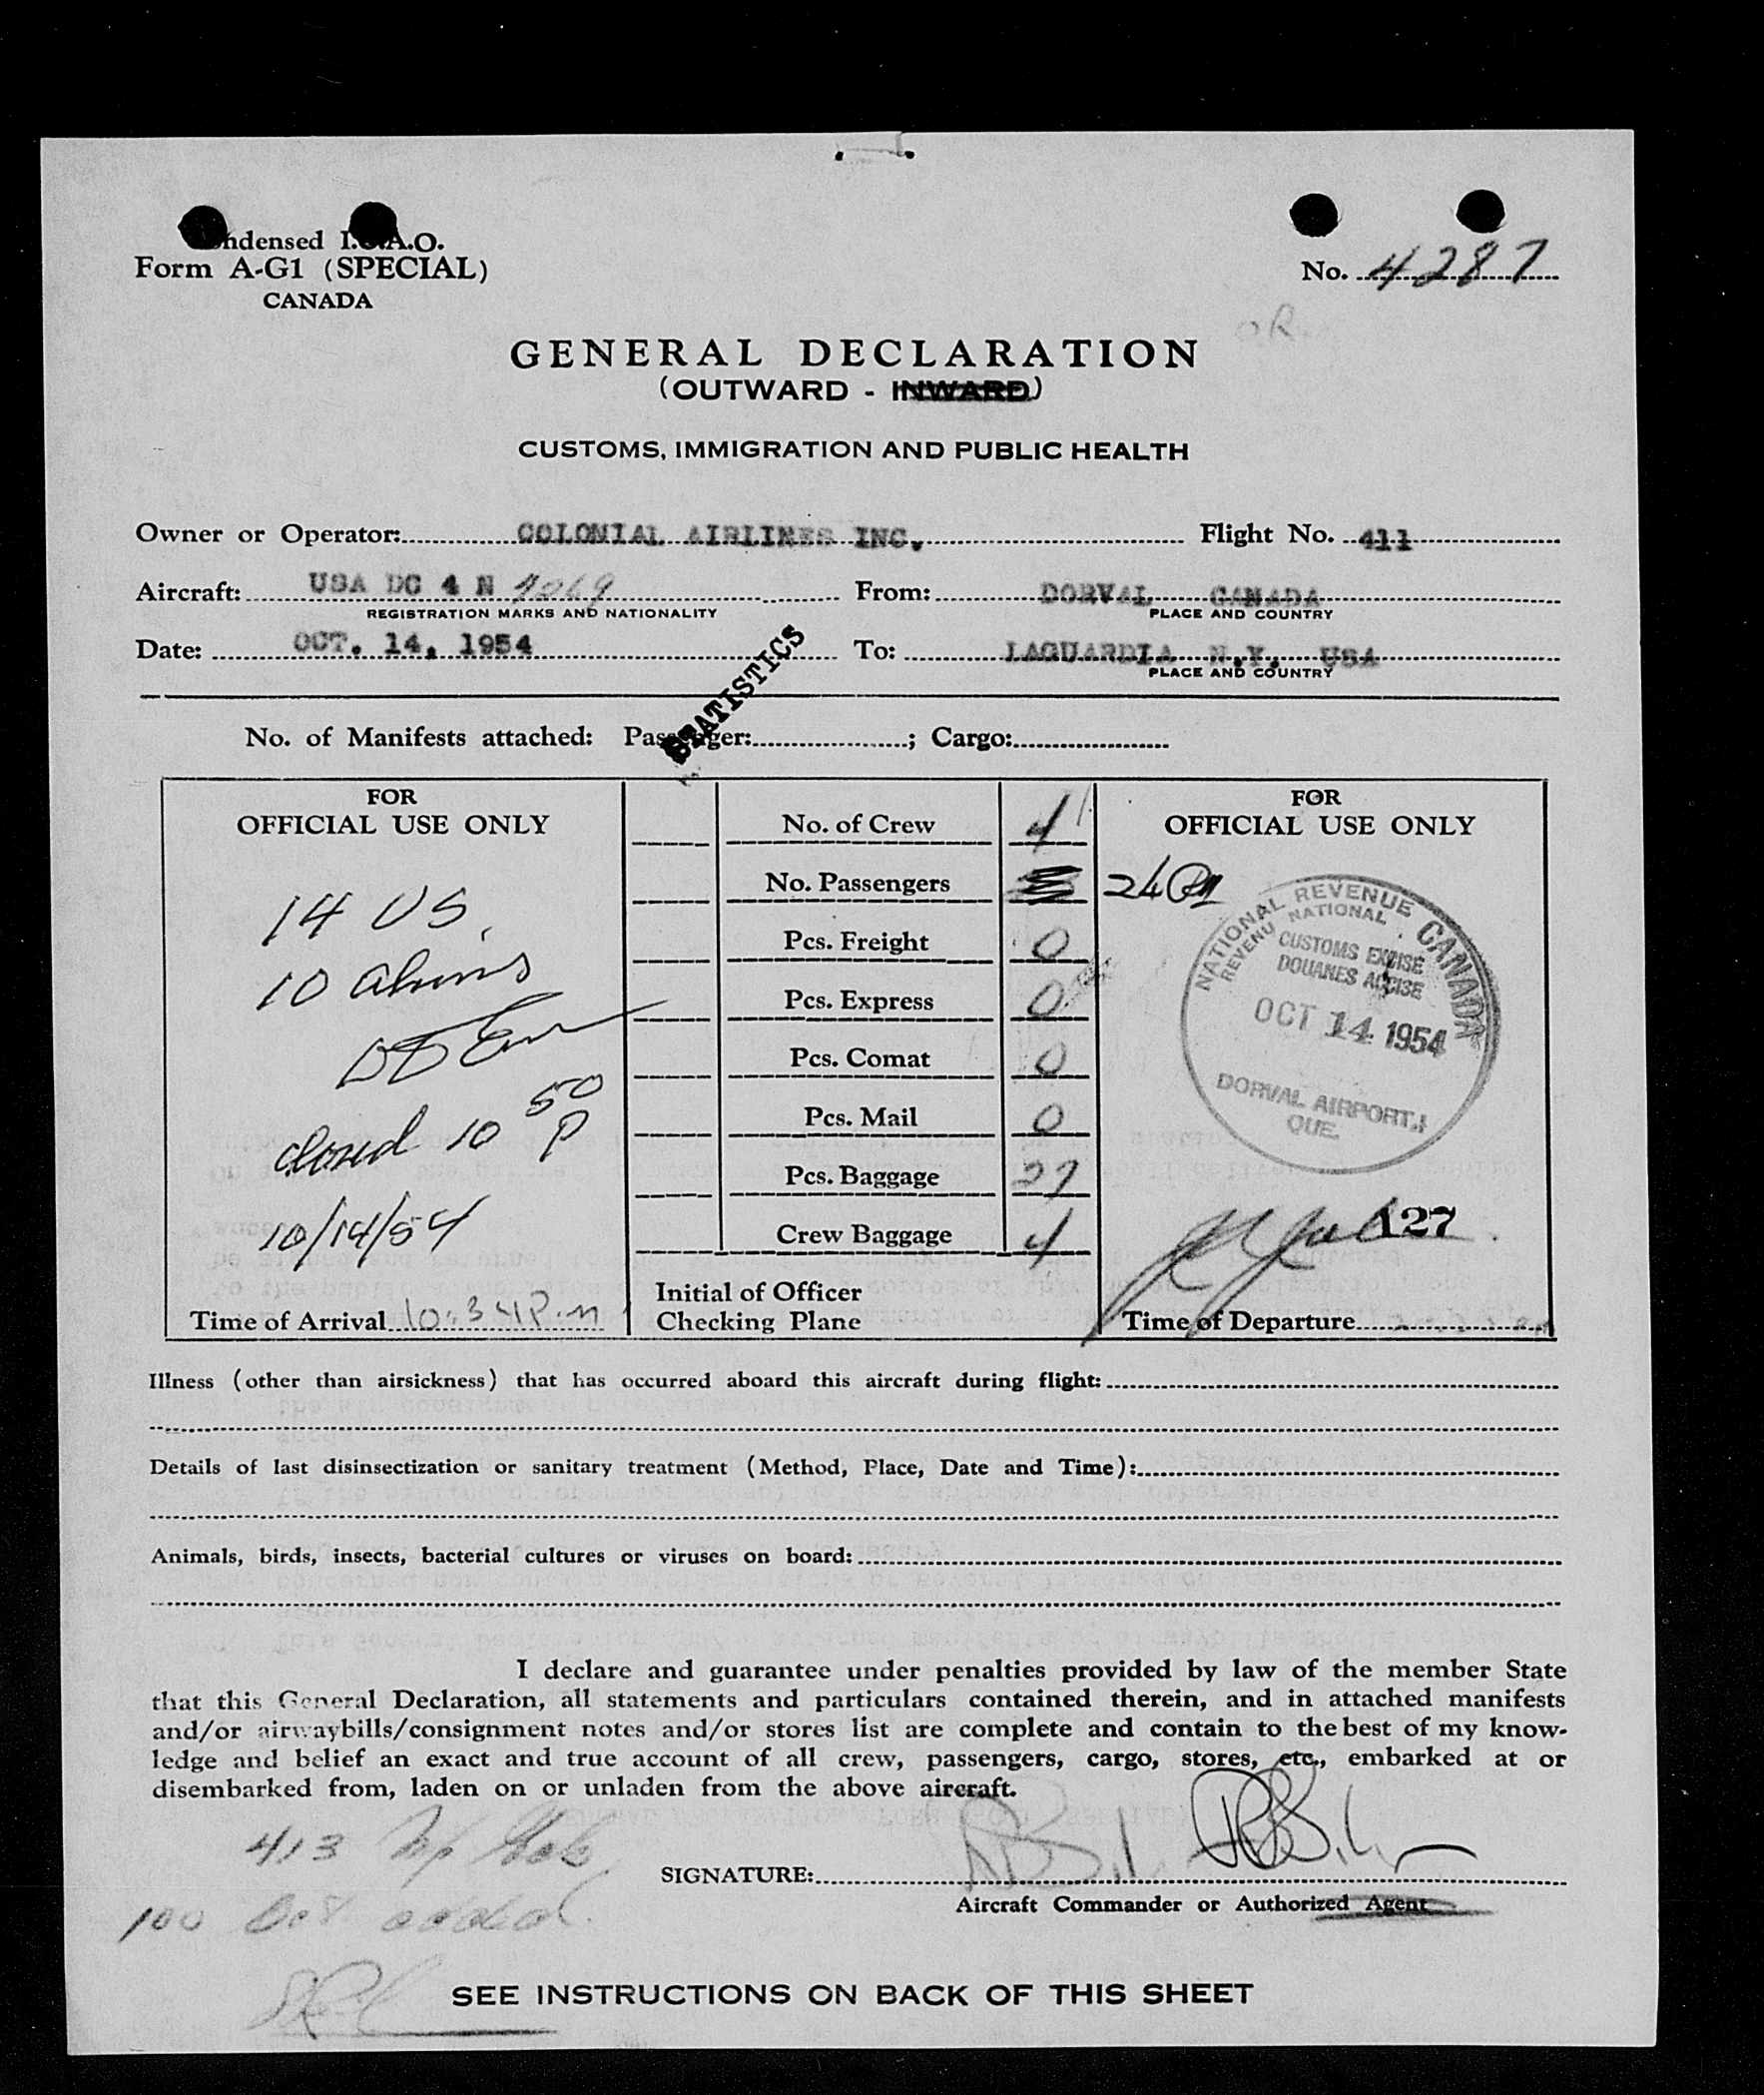 Condensed I.C.A.O.
Form A-G1 (SPECIAL)
CANADA
No. 4287
OR
GENERAL DECLARATION
(OUTWARD - INWARD)
CUSTOMS, IMMIGRATION AND PUBLIC HEALTH
Owner or Operator: COLONIAL AIRLINES INC. Flight No. 411
Aircraft: USA DC 4 N From: DORVAL CANADA
REGISTRATION MARKS AND NATIONALITY PLACE AND COUNTRY
Date: OCT. 14, 1954 To: LAGUARDIA N.Y. USA
PLACE AND COUNTRY
STATISTICS
No. of Manifests attached: Passenger: ; Cargo:
FOR
OFFICIAL USE ONLY
14 US.
10 aliens
closed 10 50 P
10/14/54
Time of Arrival 10:34 P.m
No. of Crew 4
No. Passengers 24
Pcs. Freight 0
Pcs. Express 0
Pcs. Comat 0
Pcs. Mail 0
Pcs. Baggage 27
Crew Baggage 4
Initial of Officer
Checking Plane
FOR
OFFICIAL USE ONLY
NATIONAL REVENUE CANADA
REVENU NATIONAL
CUSTOMS EXCISE
DOUANES ACCISE
OCT 14 1954
DORVAL AIRPORT
QUE.
127
Time of Departure
Illness (other than airsickness) that has occurred aboard this aircraft during flight:
Details of last disinsectization or sanitary treatment (Method, Place, Date and Time):
Animals, birds, insects, bacterial cultures or viruses on board:
I declare and guarantee under penalties provided by law of the member State
that this General Declaration, all statements and particulars contained therein, and in attached manifests
and/or airwaybills/consignment notes and/or stores list are complete and contain to the best of my know-
ledge and belief an exact and true account of all crew, passengers, cargo, stores, etc., embarked at or
disembarked from, laden on or unladen from the above aircraft.
413
100 added.
SIGNATURE:
Aircraft Commander or Authorized Agent
SEE INSTRUCTIONS ON BACK OF THIS SHEET